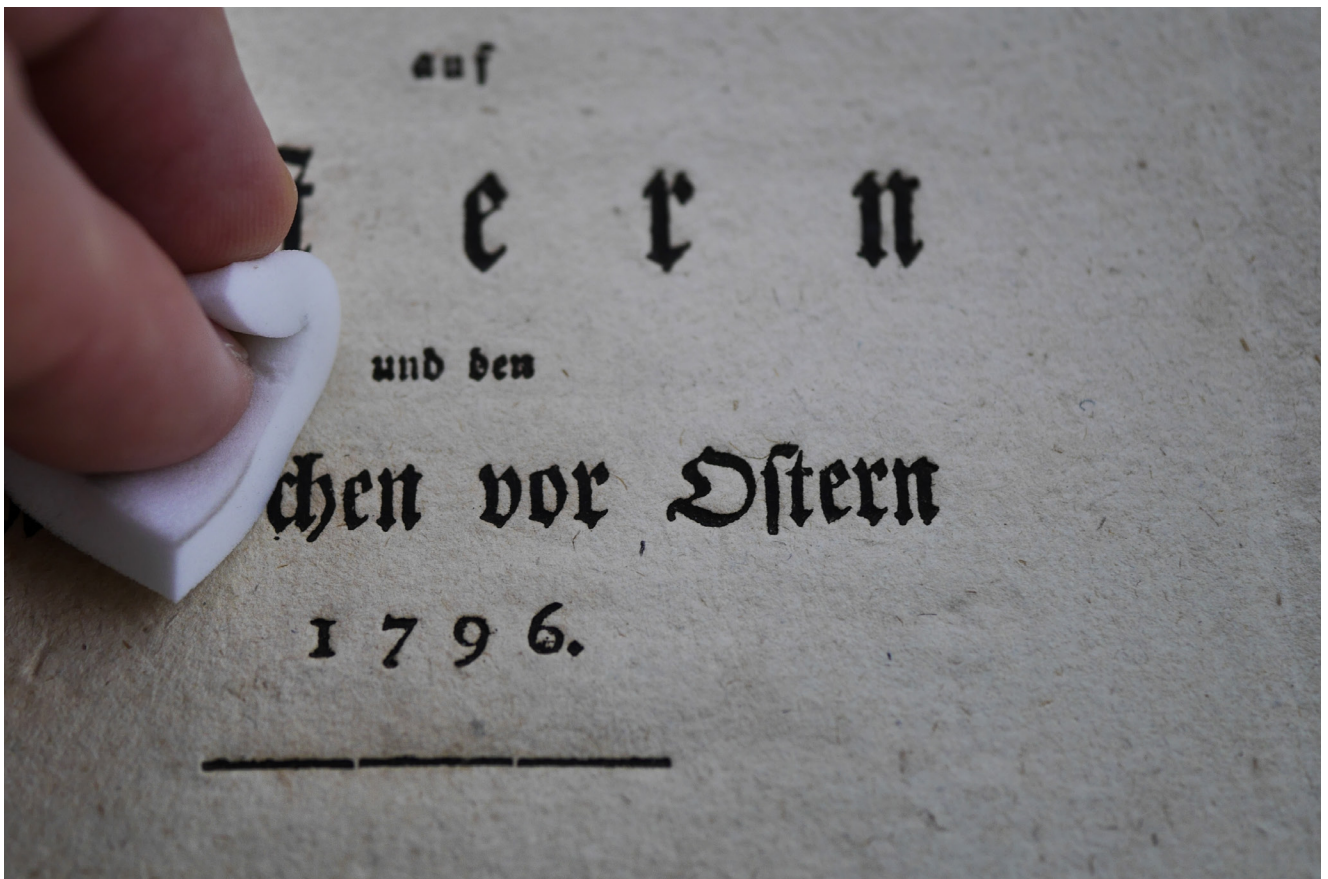 auf
ern
und den
chen vor Oſtern
1796.